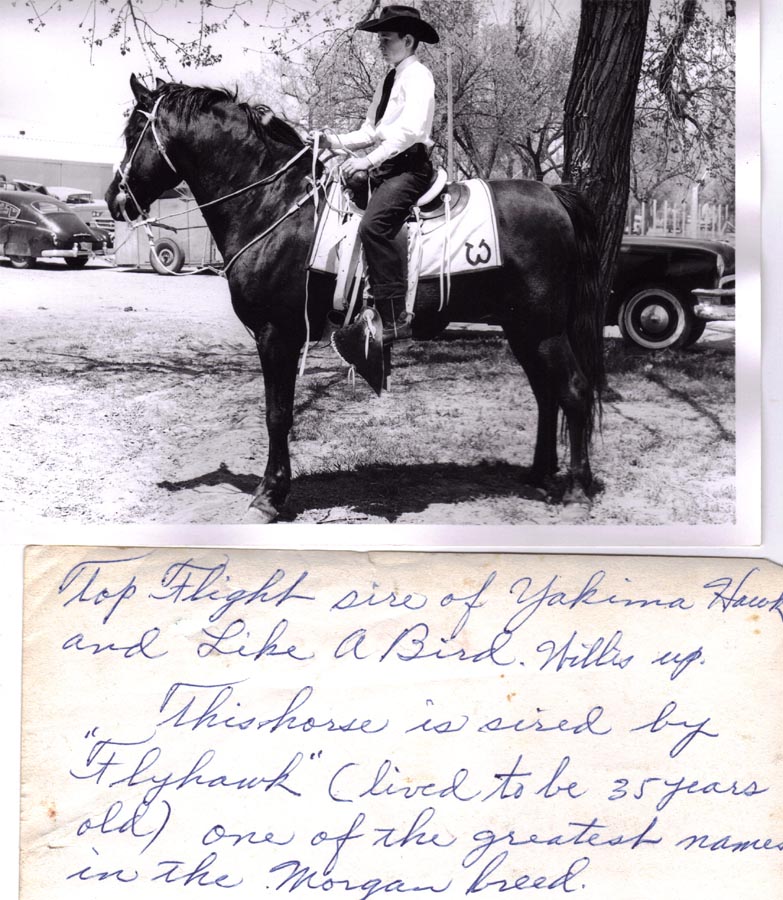 Top Flight sire of Yakima Hawk
and Like A Bird. Willis up.
This horse is sired by
"Flyhawk" (lived to be 35 years
old) one of the greatest names
in the Morgan breed.